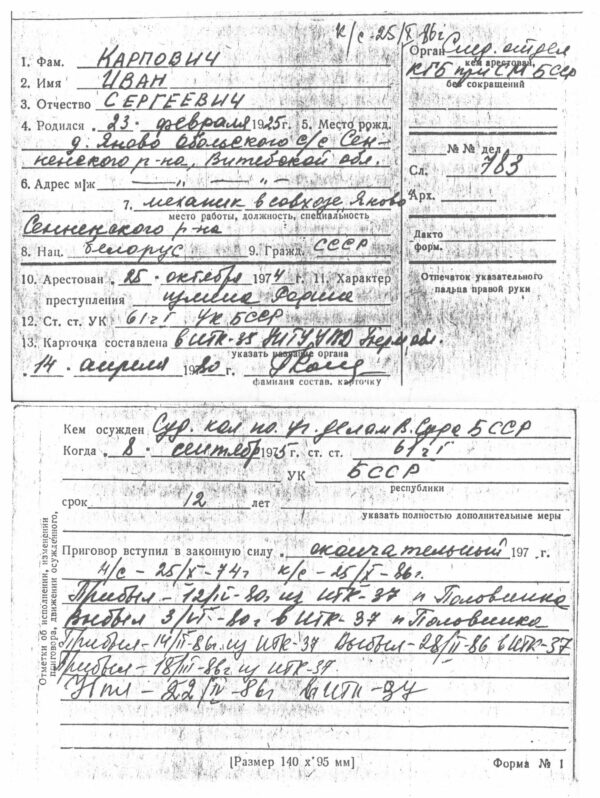 к/с 25/X 86г
1. Фам. КАРПОВИЧ
2. Имя ИВАН
3. Отчество СЕРГЕЕВИЧ
4. Родился „ 23 " февраля 1925г. 5. Место рожд.
д. Яново Обольского с/с Сен-
ненского р-на, Витебской обл.
6. Адрес м/ж — „ — „ —
7. механик в совхозе Яново
место работы, должность, специальность
Сенненского р-на
8. Нац. белорус 9. Гражд. СССР
10. Арестован „ 25 " октября 1974 г. 11. Характер
преступления измена Родине
12. Ст. ст. УК 61 ч I УК БССР
13. Карточка составлена в ИТК-35 УИТУ УВД Перм обл.
указать название органа
„ 14 " апреля 1980 г.
фамилия состав. карточку
Орган След. отдел
кем арестован,
КГБ при СМ БССР
без сокращений
№№ дел
Сл. 783
Арх.
Дакто
форм.
Отпечаток указательного
пальца правой руки
Кем осужден Суд. кол по уг. делам В. Суда БССР
Когда „ 8 " сентября 1975 г. ст. ст. 61 ч I
УК БССР
республики
срок 12 лет
указать полностью дополнительные меры
Приговор вступил в законную силу „ окончательный 197 г.
Отметки об исполнении, изменении
приговора, движении осужденного,
н/с - 25/X-74г к/с - 25/X-86г.
Прибыл - 12/IV-80г из ИТК-37 п Половинка
Выбыл 3/VI-80г в ИТК-37 п Половинка
Прибыл-14/II-86г. из ИТК-37 Выбыл-28/II-86 в ИТК-37
Прибыл-18/III-86г из ИТК-37.
22/IV-86г в ИТК-37
[Размер 140 х 95 мм] Форма № 1